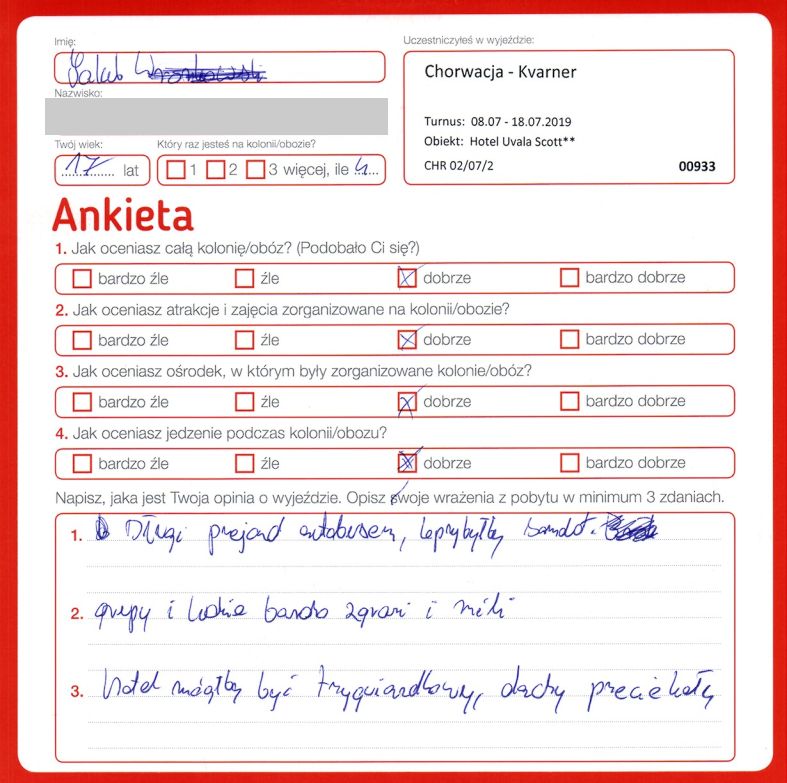 Imię:
Jakub
Nazwisko:
Twój wiek:
17 lat
Który raz jesteś na kolonii/obozie?
1 2 3 więcej, ile 4
Uczestniczyłeś w wyjeździe:
Chorwacja - Kvarner
Turnus: 08.07 - 18.07.2019
Obiekt: Hotel Uvala Scott**
CHR 02/07/2 00933
Ankieta
1. Jak oceniasz całą kolonię/obóz? (Podobało Ci się?)
bardzo źle źle dobrze bardzo dobrze
2. Jak oceniasz atrakcje i zajęcia zorganizowane na kolonii/obozie?
bardzo źle źle dobrze bardzo dobrze
3. Jak oceniasz ośrodek, w którym były zorganizowane kolonie/obóz?
bardzo źle źle dobrze bardzo dobrze
4. Jak oceniasz jedzenie podczas kolonii/obozu?
bardzo źle źle dobrze bardzo dobrze
Napisz, jaka jest Twoja opinia o wyjeździe. Opisz swoje wrażenia z pobytu w minimum 3 zdaniach.
1. Długi przejazd autobusem, lepszy byłby samolot.
2. grupy i ludzie bardzo zgrani i mili
3. Hotel mógłby być trzygwiazdkowy, dachy przeciekały